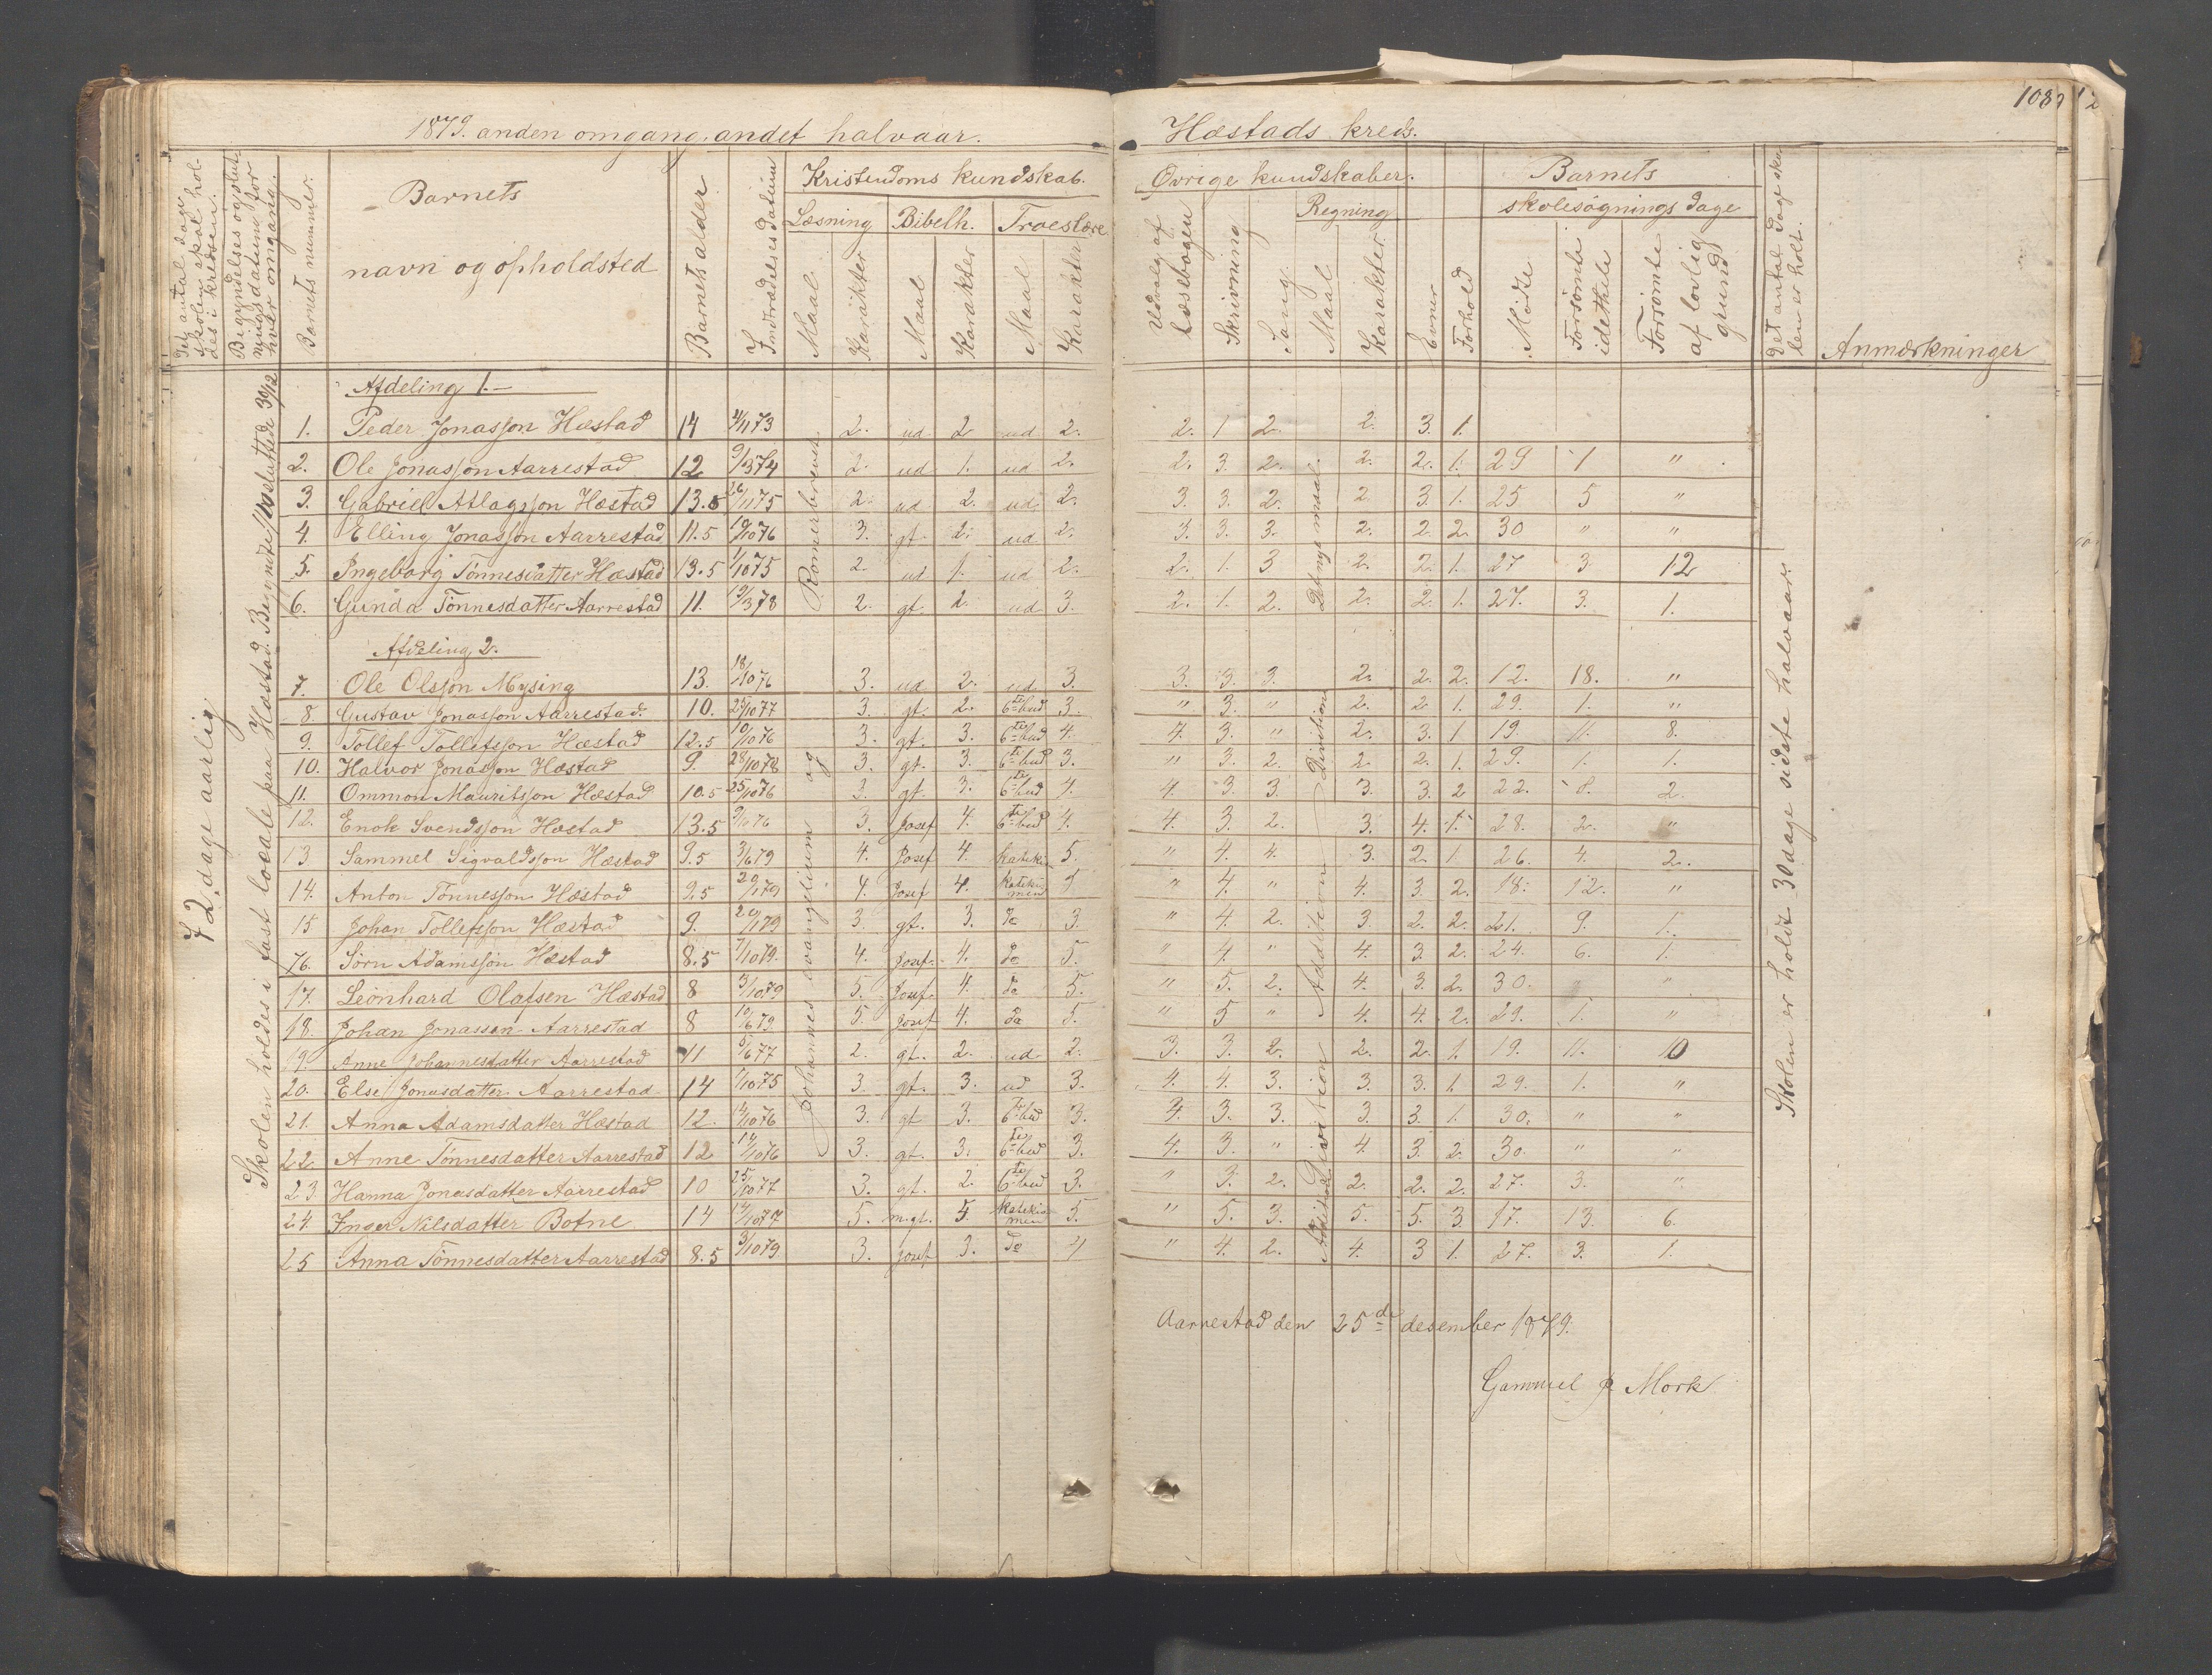 1879. anden omgang, andet halvaar. Hæstads kreds. 108
Det antal dage skolen skal holdes i kredsen.
Begyndelses og slutningsdatum for hver omgang.
Barnets nummer.
Barnets navn og opholdsted
Barnets alder
Indtrædelsesdatum
Kristendoms kundskab.
Læsning Bibelh. Troeslære
Maal Karakter Maal Karakter Maal Karakter
Øvrige kundskaber.
Udvalg af Læsebogen
Skrivning
Sang
Regning
Maal Karakter
Evner
Forhold
Barnets skolesøgnings dage
Mødte
Forsømte idethele
Forsømte af lovlig grund
Det antal dage skolen er holt.
Anmærkninger
72 dage aarlig
Skolen holdes i fast locale paa Hæstad. Begyndte sluttede 30/12
Romerbrevet og Johannes evangelium
Det nye maal.
Divition
Addition
Divition
Addition
Skolen er holdt 30 dage sidste halvaar.
Afdeling 1.
1. Peder Jonasson Hæstad 14 2/11 73 2. ud 2 ud 2. 2. 1 2. 2. 3. 1.
2. Ole Jonasson Aarrestad 12 9/3 74 2. ud 1. ud 2. 2. 3. 2. 2. 2. 1. 29 1 "
3. Gabriel Atlagsson Hæstad 13.5 26/11 75 2. ud 2. ud 2. 3. 3. 2. 2. 3. 1. 25 5 "
4. Elling Jonasson Aarrestad 11.5 19/10 76 3. gt. 2. ud 2. 3. 3. 3. 2. 2. 2. 30 " "
5. Ingeborg Tönnesdatter Hæstad 13.5 1/10 75 2. ud 1. ud 2. 2. 1. 3 2. 2. 1. 27 3 12
6. Gunda Tönnesdatter Aarrestad 11. 19/3 78 2. gt. 2. ud 3. 2. 1. 2. 2. 2. 1. 27. 3. 1.
Afdeling 2.
7. Ole Olsson Mysing 13. 18/10 76 3. ud 2. ud 3. 3. 3. 3. 2. 2. 2. 12. 18. "
8. Gustav Jonasson Aarrestad. 10. 25/10 77 3. gt. 2. 6te bud 3. " 3. " 2. 2. 1. 29. 1. "
9. Tollef Tollefsson Hæstad 12.5 10/10 76 3. gt. 3. 6te bud 4. 4. 3. " 2. 3. 1 19. 11. 8.
10. Halvor Jonasson Hæstad 9. 28/10 78 3. gt. 3. 6te bud 3. " 3. 2. 2. 2. 1. 29. 1. 1.
11. Ommon Mauritsson Hæstad 10.5 25/10 76 3. gt. 3. 6te bud 4. 4. 3. 3. 3. 3. 2 22. 8. 2.
12. Enok Svendsson Hæstad 13.5 9/10 76 3. Josef 4. 6te bud 4. 4. 3. 2. 3. 4. 1. 28. 2. "
13 Sammel Sigvaldsson Hæstad 9.5 3/6 79 4. Josef 4. Katekis 5. " 4. 4. 3. 2. 1. 26. 4. 2.
14. Anton Tönnesson Hæstad 9.5 20/1 79 4. Josef 4. Katekismen 5 " 4. " 4. 3. 2. 18. 12. "
15 Johan Tollefsson Hæstad 9. 20/1 79 3. gt. 3. do 3 " 4. 2. 3. 2. 2. 21. 9. 1.
16. Sörn Adamsson Hæstad 8.5 7/10 79. 4. Josef. 4. do 5. " 4. " 4. 3. 2. 24. 6. 1.
17. Leonhard Olafsen Hæstad 8 3/10 79 5. Josef. 4. do 5. " 5. 2. 4. 3. 2. 30. "
18. Johan Jonassen Aarrestad 8 10/6 79. 5. Josef 4. do 5. " 5 " 4. 4. 2. 29. 1. "
19. Anne Johannesdatter Aarrestad 11 5/6 77 2. gt. 2. ud 2. 3. 3. 2. 2. 2. 1. 19. 11. 10
20. Else Jonasdatter Aarrestad 14 1/10 75 3. gt. 3. ud 3. 4. 4. 3. 3. 3. 1. 29. 1. "
21. Anna Adamsdatter Hæstad 12. 14/10 76 3. gt 3. 6te bud 3. 4. 3. 3. 3. 3. 1. 30. " "
22 Anne Tönnesdatter Aarrestad 12 14/10 76 3. gt. 3. 6te bud 3. 4. 3. " 4. 3. 2. 30. " "
23. Hanna Jonasdatter Aarrestad 10 25/10 77 3. gt. 2. 6te bud 3. " 3. 2. 2. 2. 2. 27. 3. "
24. Inger Nilsdatter Botne 14 14/10 77 5. m.gt. 5. Katekismen 5. " 5. 3. 5. 5. 3. 17. 13. 6.
25 Anna Tönnesdatter Aarrestad 8.5 3/10 79 3. Josef 3. do 4 " 4. 2. 4. 3 1. 27. 3. 1.
Aarrestad den 25de desember 1879.
Gammel J Mork